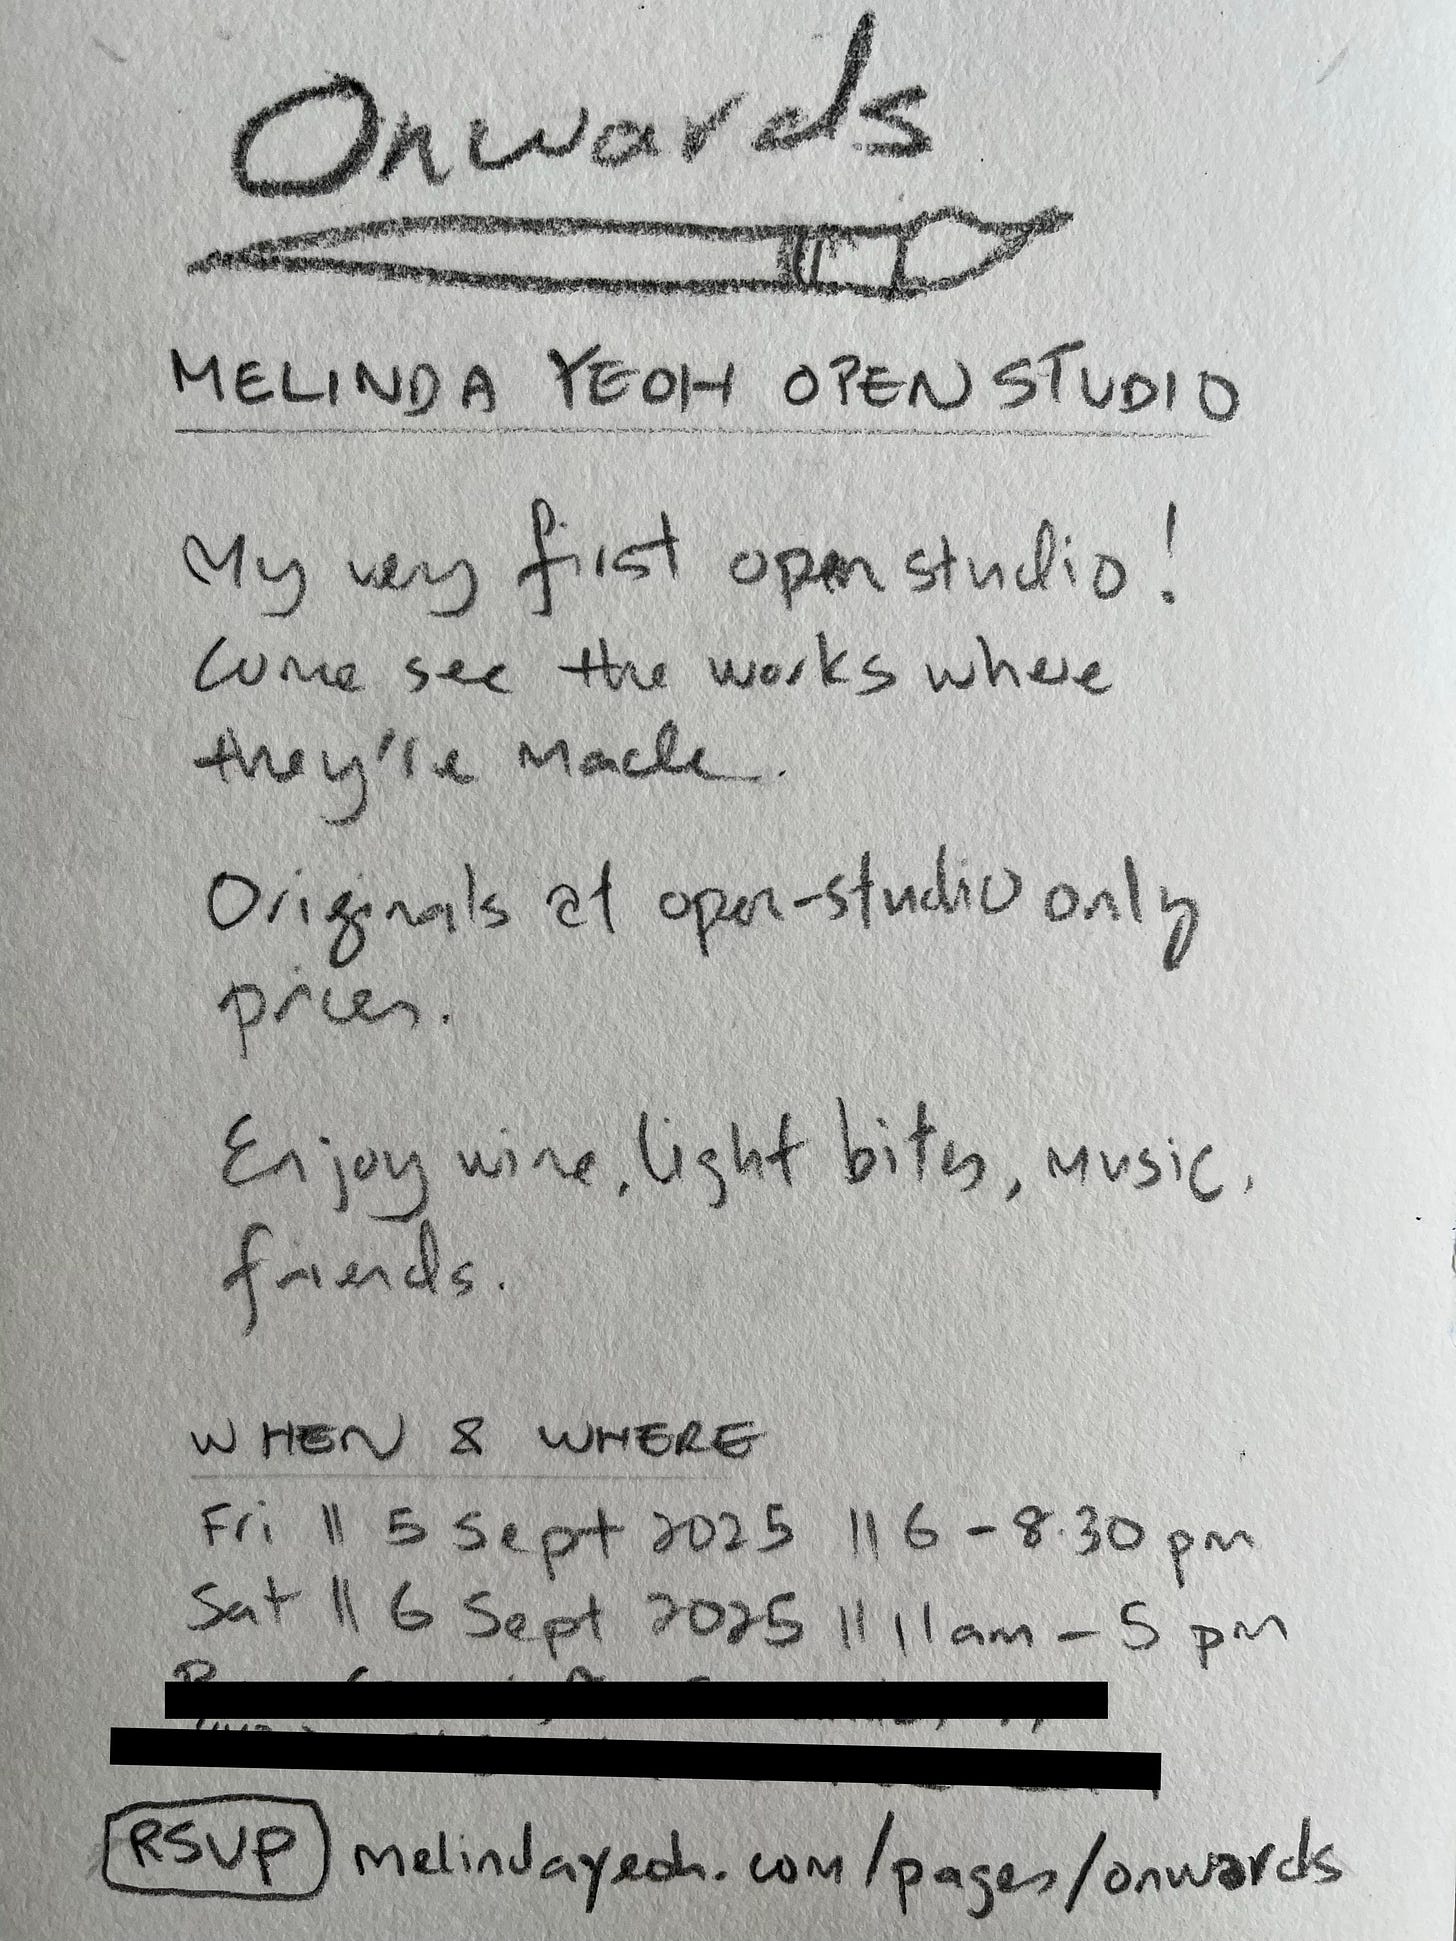 Onwards
MELINDA YEOH OPEN STUDIO
My very first open studio!
Come see the works where
they're made.
Originals at open-studio only
prices.
Enjoy wine, light bites, music,
friends.
WHEN & WHERE
Fri || 5 Sept 2025 || 6 - 8.30 pm
Sat || 6 Sept 2025 || 11am - 5 pm
RSVP melindayeoh.com/pages/onwards